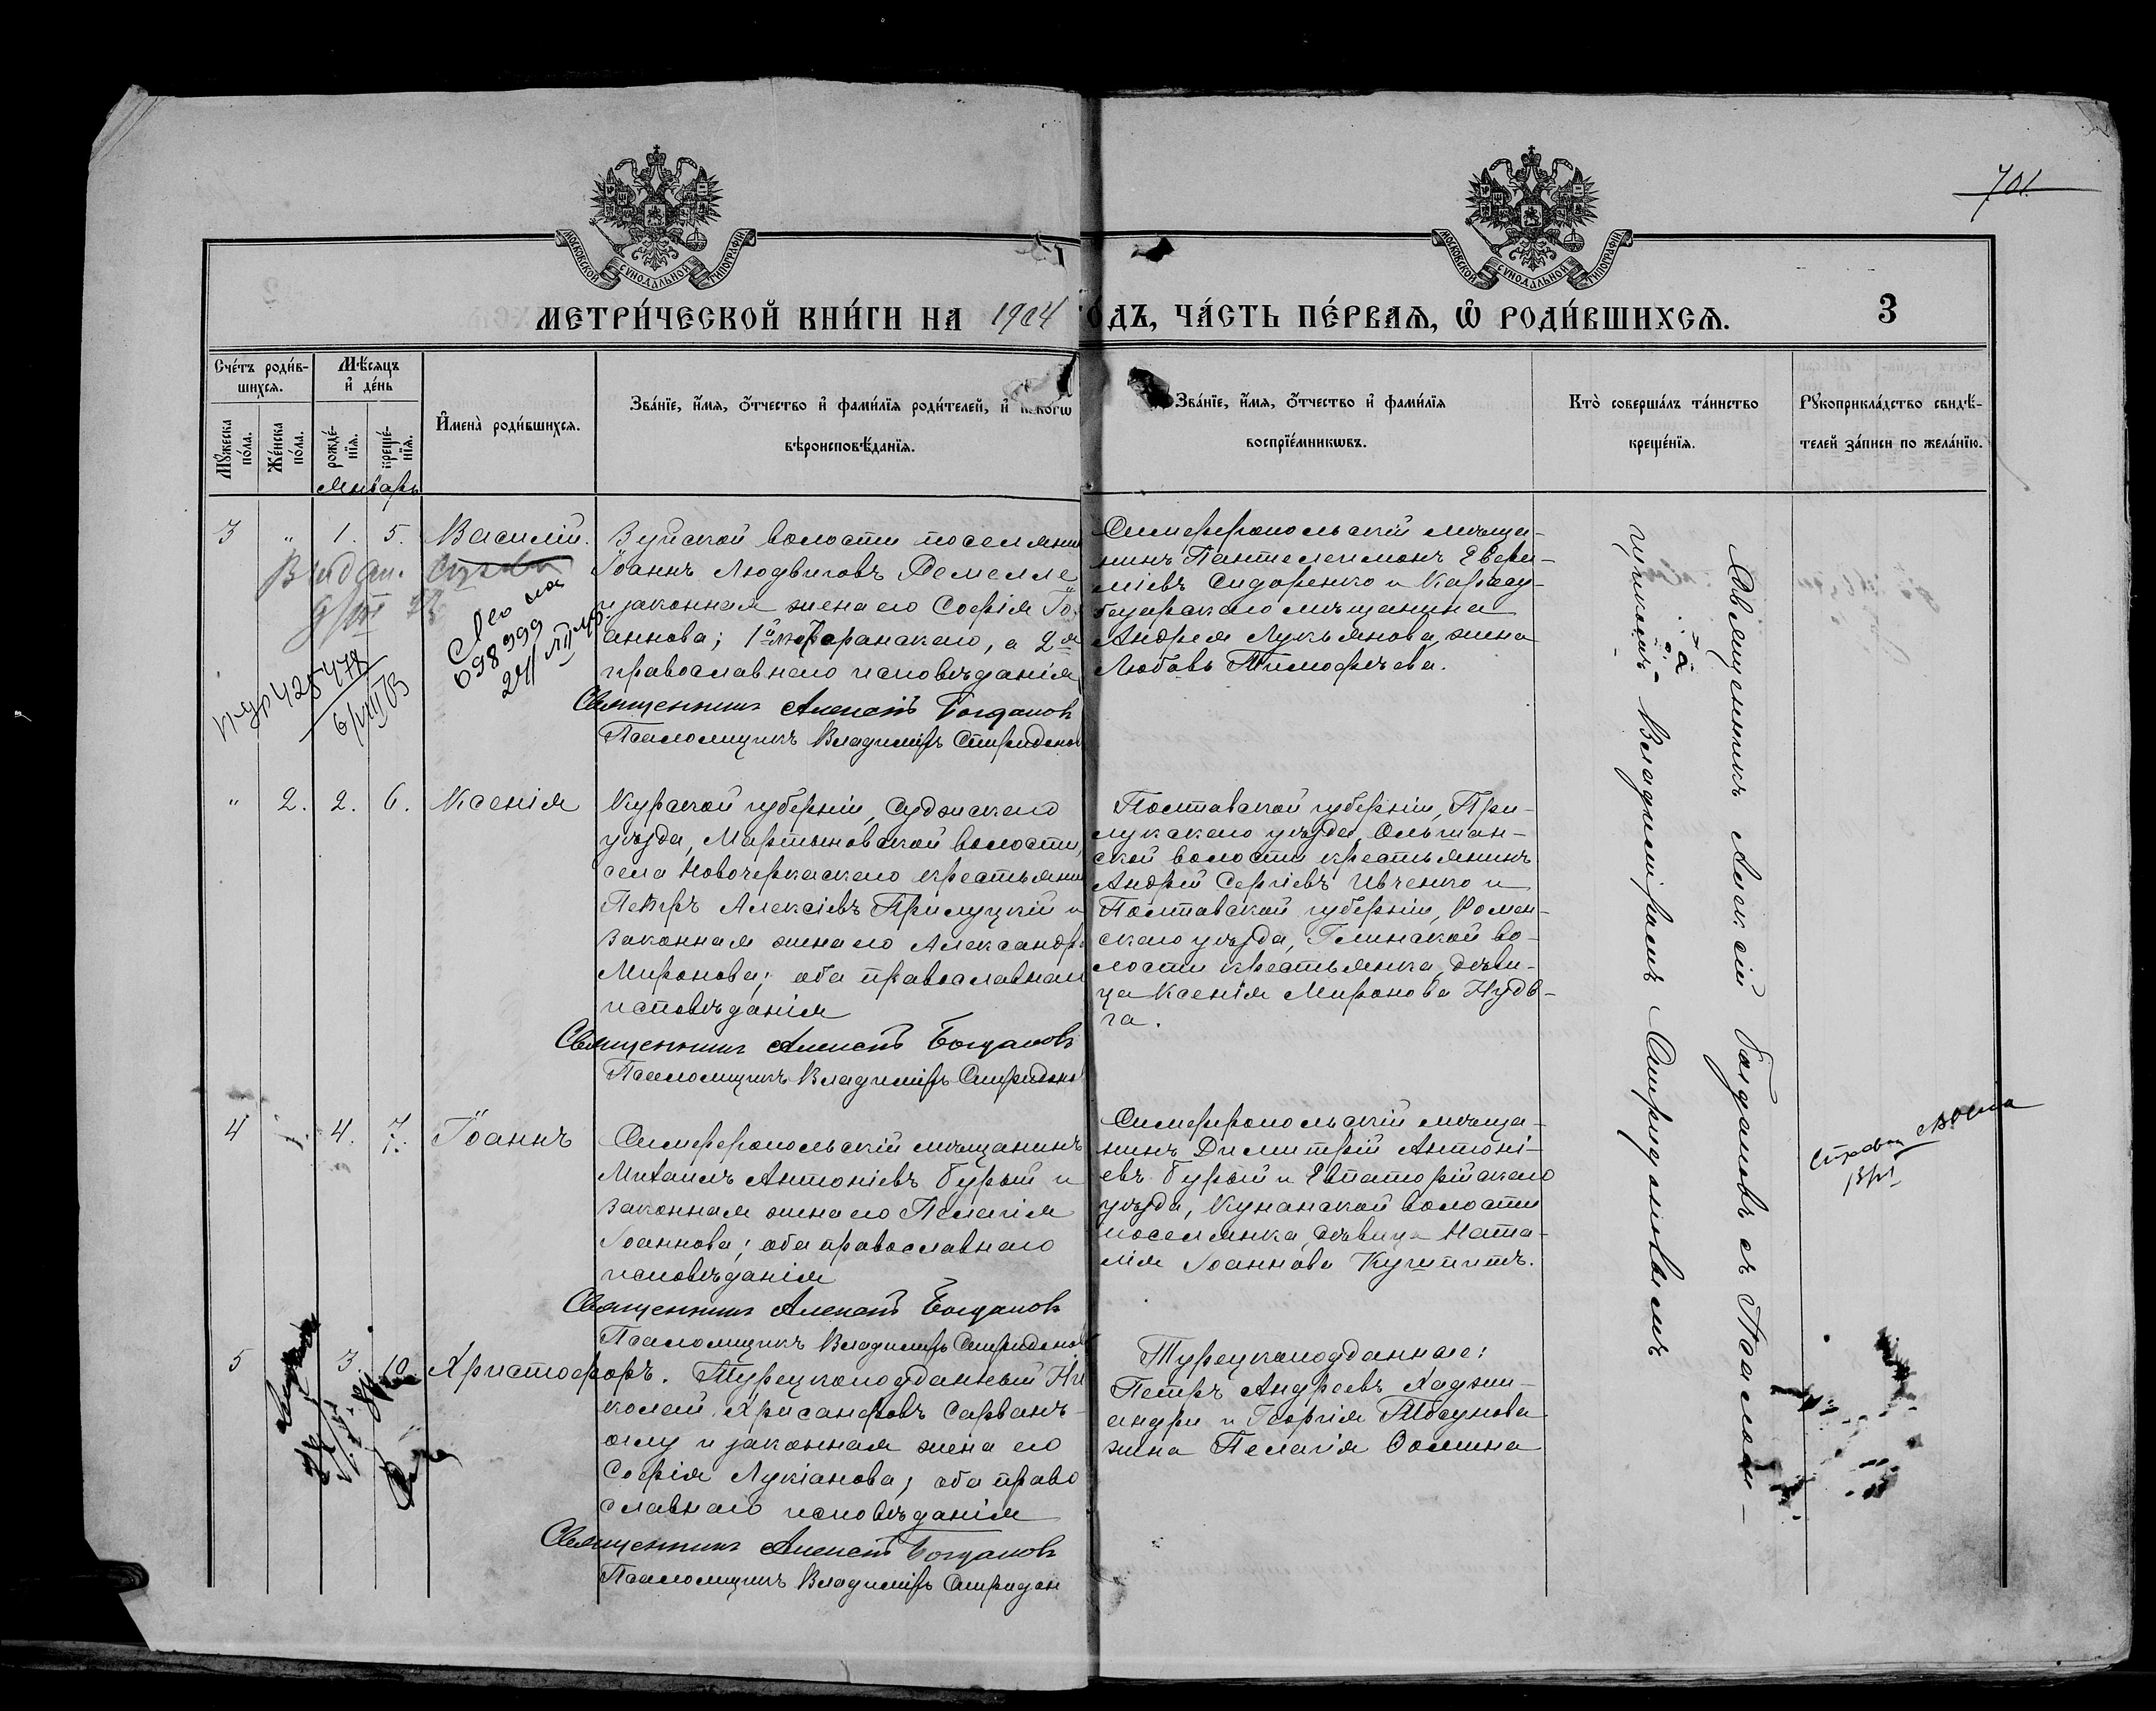 701.
МОСКОВСКОЙ СѴНОДАЛЬНОЙ ТИПОГРАФІИ
МОСКОВСКОЙ СѴНОДАЛЬНОЙ ТИПОГРАФІИ
МЕТРИ́ЧЕСКОЙ КНИ́ГИ НА 1904 ГО́ДЪ, ЧА́СТЬ ПЕ́РВАѦ, Ѡ҆ РОДИ́ВШИХСѦ.
3
Сче́тъ роди́в-
шихсѧ.
Мꙋ́жеска по́ла.
Же́нска по́ла.
Мѣ́сѧцъ
и҆ де́нь
рожде́-нїѧ.
креще́-нїѧ.
Январь
И҆мена̀ роди́вшихсѧ.
Зва́нїе, и҆́мѧ, ѻ҆́тчество и҆ фами́лїѧ роди́телей, и҆ како́гѡ
вѣроисповѣ́данїѧ.
Зва́нїе, и҆́мѧ, ѻ҆́тчество и҆ фами́лїѧ
воспрїе́мникѡвъ.
Кто̀ соверша́лъ та́инство
креще́нїѧ.
Рꙋкоприкла́дство свидѣ́-
телей за́писи по жела́нїю.
3 " 1. 5. Василій.
Зуйской волости поселянин
Іоаннъ Людвиговъ Демелле
и законная жена его Софія Іо-
аннова; 1й лютеранскаго, а 2я
православнаго исповѣданія
Священникъ Алексій Богданов
Псаломщикъ Владиміръ Спиридонов
Симферопольскій мѣща-
нинъ Пантелеимонъ Евѳи-
міевъ Сидоренко и Карасу-
базарскаго мѣщанина
Андрея Лукьянова, жена
Любовь Тимоѳеева.
Выдан.
698999
428478
" 2. 2. 6. Ксенія
Курской губерніи, Суджскаго
уѣзда, Мартыновской волости,
села Новочеркаскаго крестьянин
Петръ Алексіевъ Прилуцкій и
законная жена его Александра
Миронова; оба православнаго
исповѣданія
Священникъ Алексій Богдановъ
Псаломщикъ Владиміръ Спиридонов
Полтавской губерніи, При-
лукскаго уѣзда, Ольшан-
ской волости крестьянинъ
Андрей Сергіевъ Ивченко и
Полтавской губерніи, Ромен-
скаго уѣзда, Глинской во-
лости крестьянка, дѣви-
ца Ксенія Миронова Нудь-
га.
4 " 4. 7. Іоаннъ
Симферопольскій мѣщанинъ
Михаилъ Антоніевъ Бурый и
законная жена его Пелагія
Іоаннова; оба православнаго
исповѣданія
Священникъ Алексій Богдановъ
Псаломщикъ Владиміръ Спиридонов
Симферопольскій мѣща-
нинъ Димитрій Антоні-
евъ Бурый и Евпаторійскаго
уѣзда, Кунанской волости
поселянка, дѣвица Ната-
лія Іоаннова
5 3. 10. Христофоръ.
Турецкоподданный Ни
колай Хрисанѳовъ Сарванъ-
оглу и законная жена его
Софія Лукіанова; оба право
славнаго исповѣданія
Священникъ Алексій Богдановъ
Псаломщикъ Владиміръ Спиридон
Турецкоподданные:
Петръ Андреевъ Хаджи-
андри и Георгія
жена Пелагія Ѳомина
Священникъ Алексій Богдановъ съ Псалом-
щикомъ Владиміромъ Спиридоновымъ